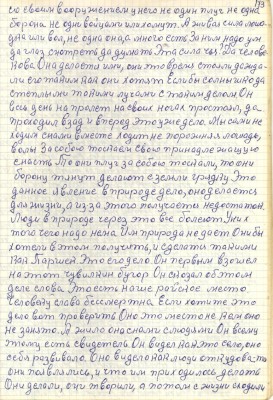 со своим вооружением у него не один плуг не одна
борона. не одни вожжи или хомут. А живая сила лошадь
или вол, не одна она много есть. За ним надо ум
да глаз, смотреть да думать. Эта сила чужая человека
нова. Она делается ими, они это время стояли дожда-
ли его такими как они хотят. Если бы солнышко да
с теплыми такими лучами с таким делом. Он
весь день на пролет на своих ногах простоял, да
проходил взад и вперед это уже дело. Мы сами не
ходим с нами вместе ходит не порожняя лошадь,
волы За собою таскаем свою принадлежащую
снасть То они плуг за собою таскали, то они
борону тянут делают с земли грядку. Это
данное явление в природе дело, оно делается
для жизни, а из за этого получается недостаток.
Люди в природе через это все болеют. У них
того чего надо нема. Им природа не дает Они бы
хотели в этом получить, и сделать такими
как Паршек Это его дело Он первым взошел
на этот Чувилкин бугор Он сказал об этом
деле слова. Это есть наше райское место.
Человеку слава бессмертна. Если хотите это
дело вот проверить Оно это место не кем оно
не занято. А жило она с нами с людями Он всему
этому есть свидетель. Он видел как это село, оно
себя развивало. Оно видело как люди откудова-то
они появлялись, и что им приходилось делать
Они делали, они творили, а потом с жизни сходили